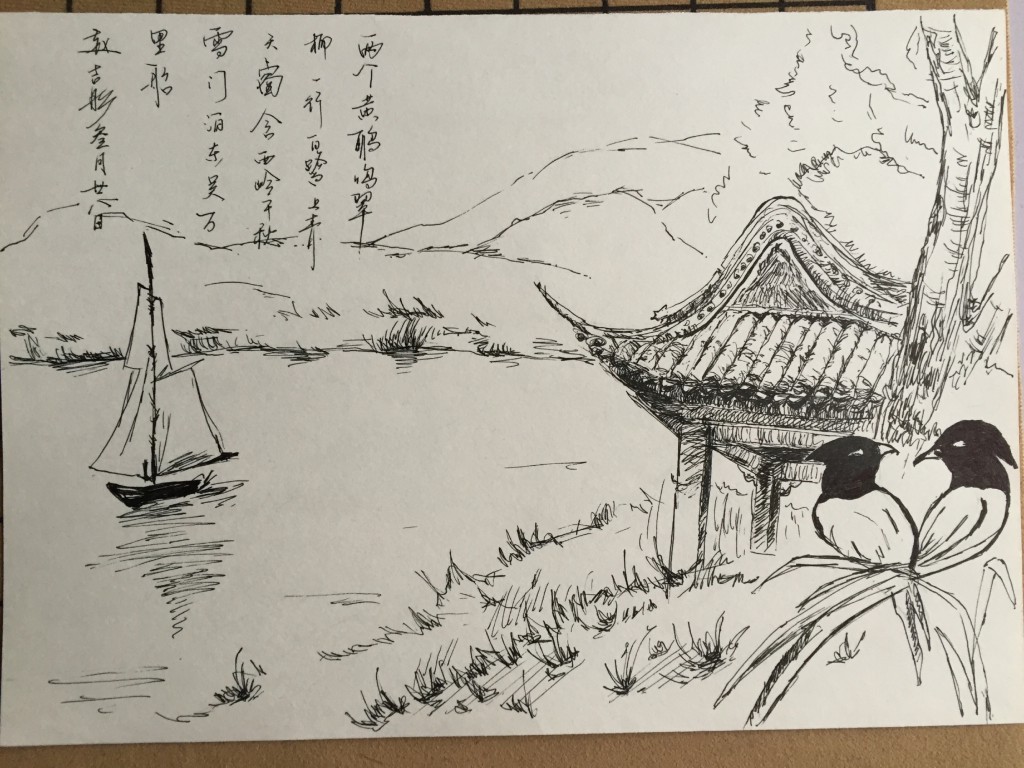 两个黄鹂鸣翠
柳一行白鹭上青
天窗含西岭千秋
雪门泊东吴万
里船
吉彤叁月廿八日